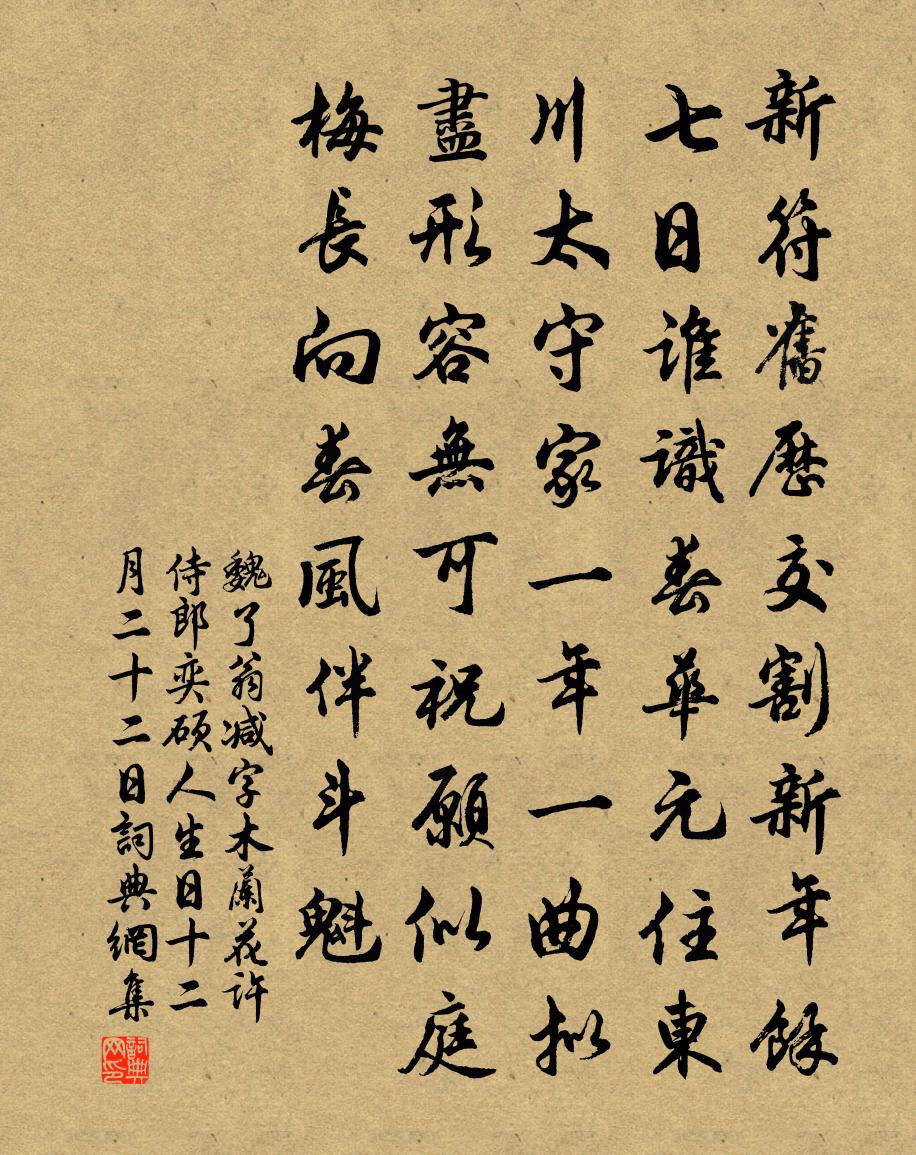 新符舊歷交割新年餘
七日誰識春華元住東
川太守家一年一曲拟
盡形容無可祝願似庭
梅長向春風伴斗魁
魏了翁减字木蘭花許
侍郎奕碩人生日十二
月二十二日詞典網集
詞典网印